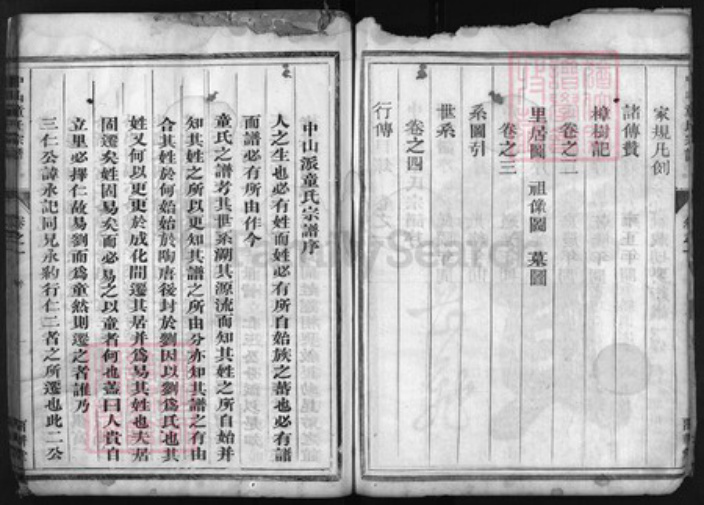 家規凡例
諸傳贊
樟樹記
卷之二
里居圖 祖像圖 墓圖
卷之三
系圖引
世系
卷之四
行傳
中山派童氏宗譜序
人之生也必有姓而姓必有所自始族之蕃也必有譜
而譜必有所由作今
童氏之譜考其世系溯其源流而知其姓之所自始并
知其姓之所以更知其譜之所由分亦知其譜之有由
合其姓於何始始於陶唐後封於劉因以劉爲氏也其
姓又何以更更於成化間遷其居并爲易其姓也夫居
固遷矣姓固易矣而必易之以童者何也蓋曰人貴自
立里必擇仁故易劉而爲童然則遷之者誰乃
三仁公諱永記同兄永約行仁二者之所遷也此二公
FamilySearch